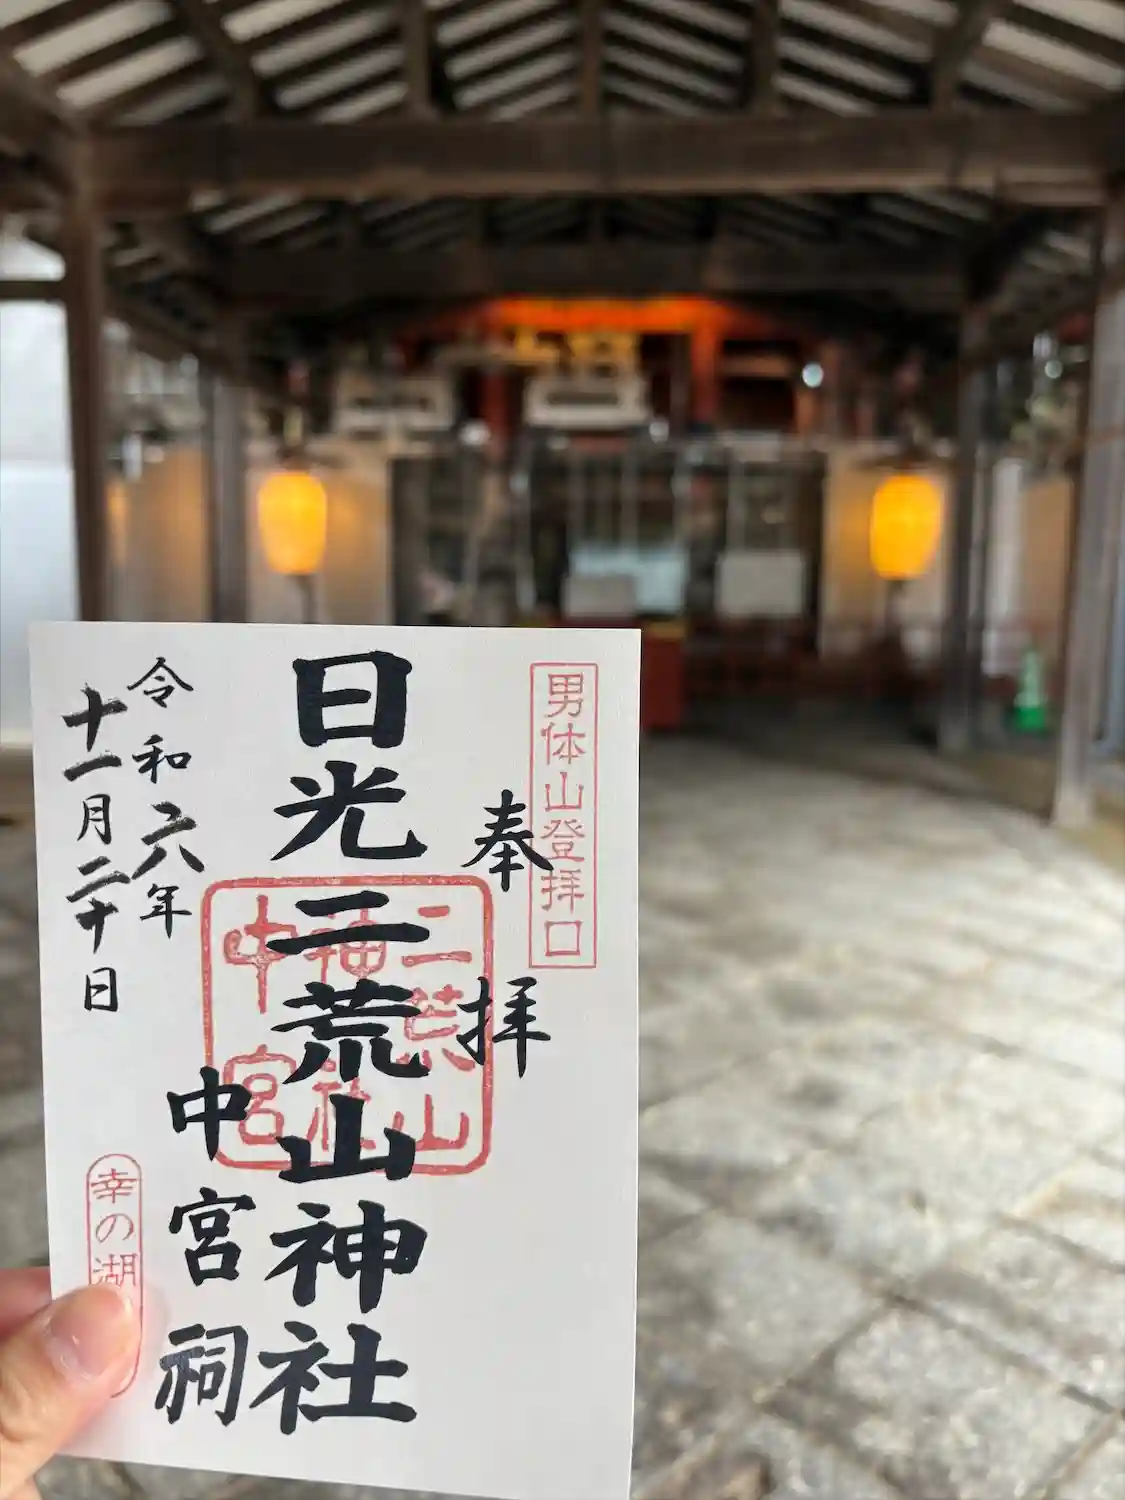 男体山登拝口
奉拝
日光二荒山神社
中宮祠
二荒山
神社
中宮
令和六年
十一月二十日
幸の湖